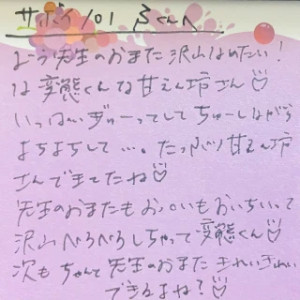 サボイ 101 るくんへ
よう先生のおまた沢山なめたい!
な変態くんな甘えん坊さん♡
いっぱいぎゅーってしてちゅーしながら
よちよちして…。たっぷり甘えん坊
さんできてたね♡
先生のおまたもお〇いもおいちいって
沢山ぺろぺろしちゃって変態くん♡
次もちゃんと先生のおまたきれいきれい
できるよね?♡